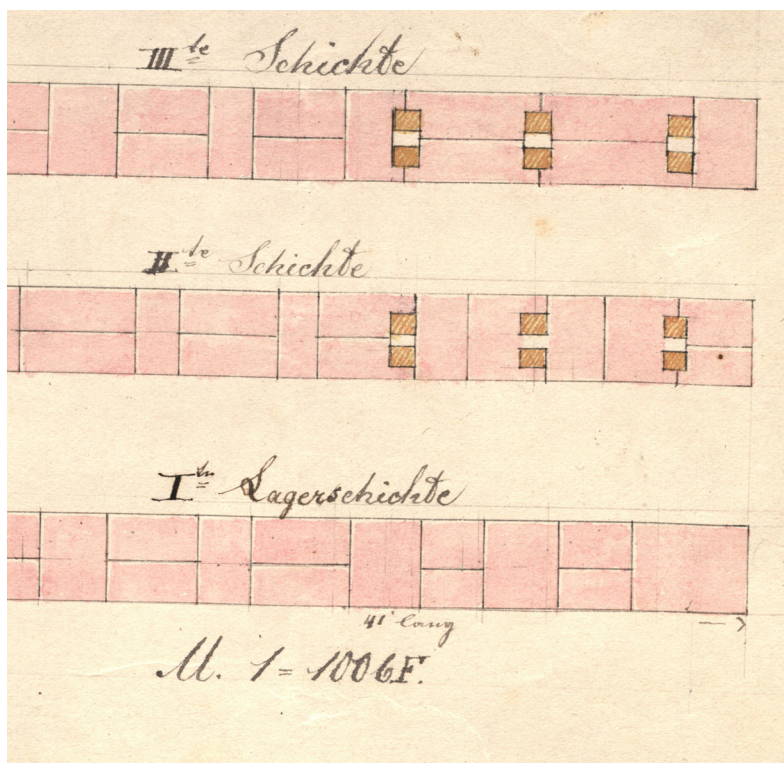 IIIte Schichte
IIte Schichte
Ite Lagerschichte
41' lang
M. 1=100 6F.